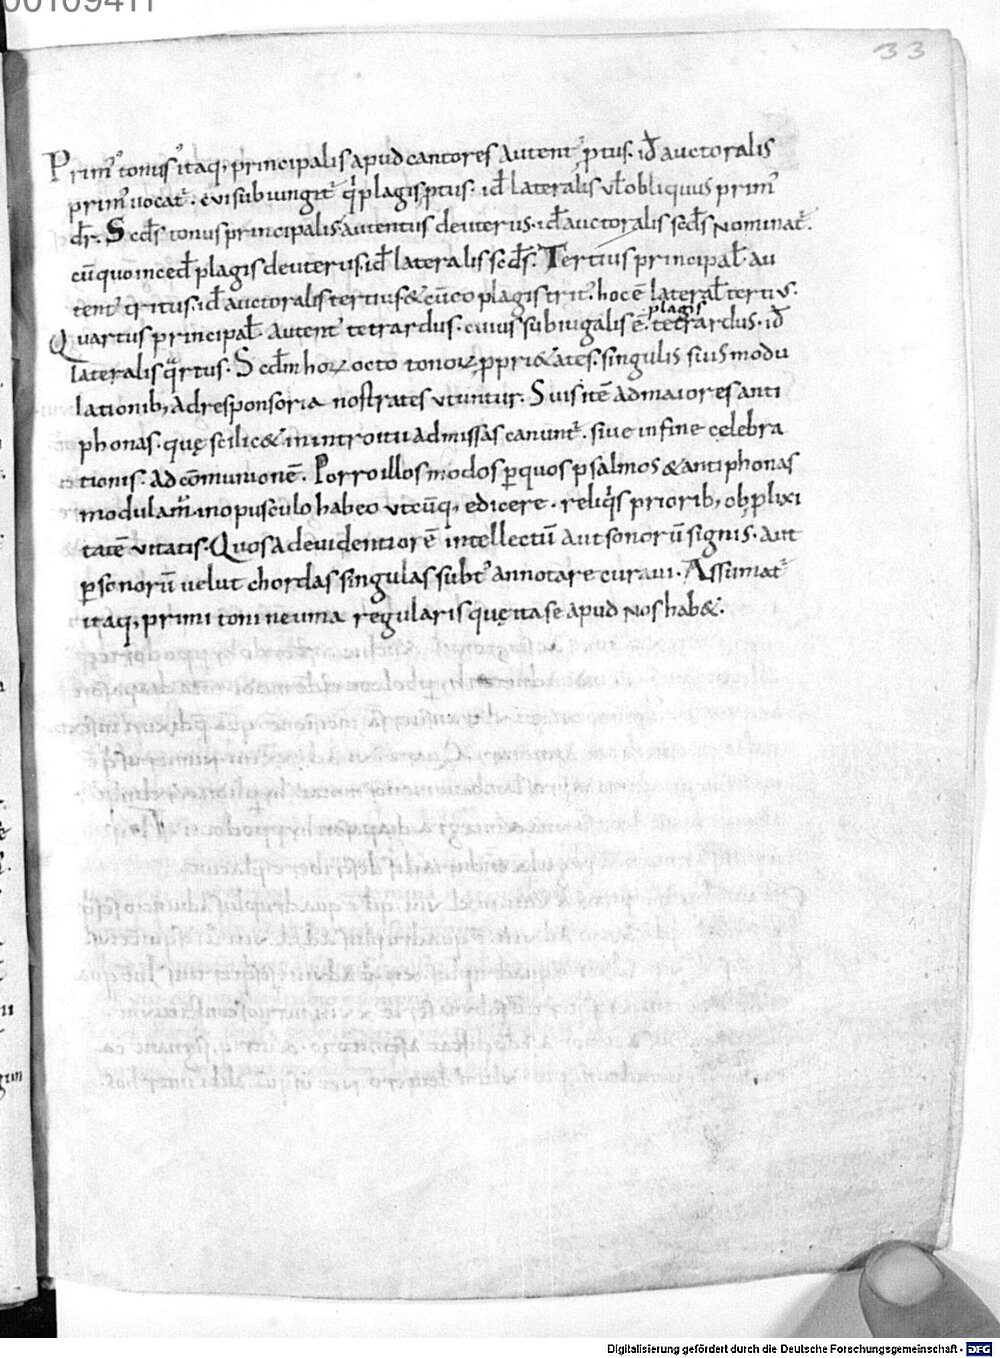 00109411
33
Primꝰ tonusꝰ itaq, principalis apud cantores autentꝰ ꝓtus. id̄ auctoralis
primꝰ uocat᷑. cui subiungit᷑ q plagis ꝓtus. id̄ lateralis ul̄ obliquus primꝰ
dr̄. Scd̄s tonus principalis autentus deuterus. id̄ auctoralis scd̄s nominat᷑.
cū quo inced̄ plagis deuterus. id̄ lateralis scd̄s. Tertius principal̄ au
tentꝰ tritus. id̄ auctoralis tertius & cū eo plagis trit᷑. hoc ē lateral̄ tertius.
plagis
Quartus principal̄. autentꝰ tetrardus. cuius subiugalis ē. tetrardus. id̄
lateralis qrtus. Scd̄m horꝝ octo tonorꝝ ꝓpri&ates. singulis suis modu
lationib, ad responsoria nostrates utuntur. Suis itē ad maiores anti
phonas. quę scilic& in introitu ad missas canunt᷑. siue in fine celebra
tionis. ad cōmunionē. Porro illos modos ꝑ quos psalmos & antiphonas
modulam᷑ in opusculo habeo utcūq, edicere. reliqs priorib, ob ꝓlixi
tatē uitatis. Quos ad euidentiorē intellectū aut sonorū signis. aut
ꝑ sonorū uelut chordas singulas subtꝰ annotare curaui. Assumat᷑
itaq, primi toni neuma regularis quę ita se apud nos hab&.
Digitalisierung gefördert durch die Deutsche Forschungsgemeinschaft - DFG